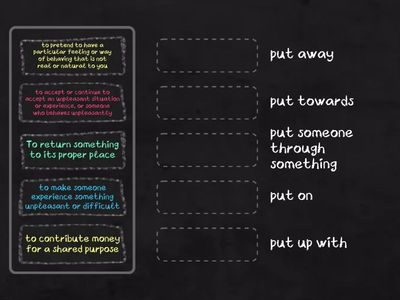 to pretend to have a
particular feeling or way
of behaving that is not
real or natural to you
to accept or continue to
accept an unpleasant situation
or experience, or someone
who behaves unpleasantly
To return something
to its proper place
to make someone
experience something
unpleasant or difficult
to contribute money
for a shared purpose
put away
put towards
put someone
through
something
put on
put up with